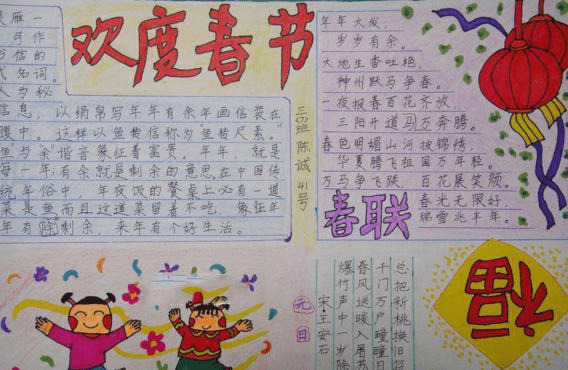 欢度春节
雁一
可作
书信的
代名词。
人为秘
信息，以绢帛写年年有余年画信装在
腹中。这样以鱼传信称为"鱼传尺素。"
鱼与"余"谐音象征着富贵。年年，就是
每一年有余就是剩余的意思在中国传
统年俗中，年夜饭的餐桌上必有一道
菜是鱼而且这道菜留着不吃，象征年
年有剩余，来年有个好生活。
三5班 陈诚 41号
年年大发，
岁岁有余。
大地生香吐艳，
神州跃马争春。
一夜报春百花齐放，
三阳开道马万奔腾。
春色明媚山河披锦绣，
华夏腾飞祖国万年轻。
万马争飞跃，百花展笑颜。
春光无限好，
瑞雪兆丰年。
春联
福
元日
宋·王安石
爆竹声中一岁除
春风送暖入屠苏
千门万户曈曈日
总把新桃换旧符